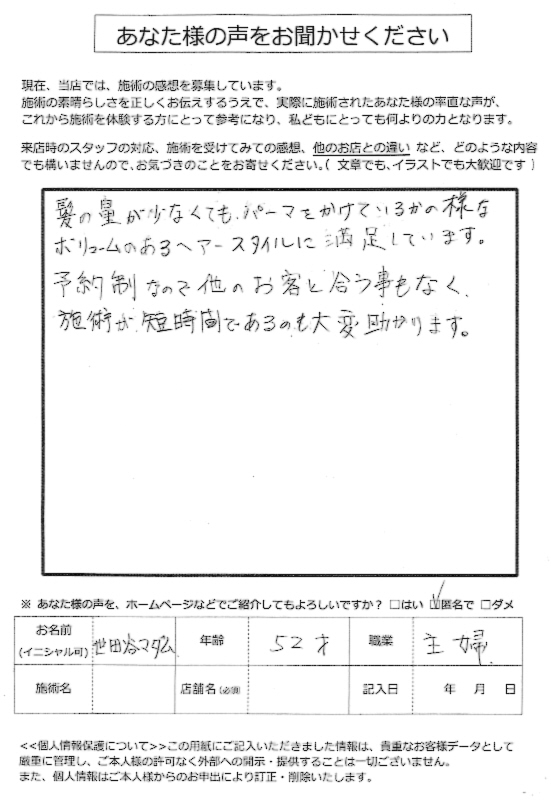 あなた様の声をお聞かせください
現在、当店では、施術の感想を募集しています。
施術の素晴らしさを正しくお伝えするうえで、実際に施術されたあなた様の率直な声が、
これから施術を体験する方にとって参考になり、私どもにとっても何よりの力となります。
来店時のスタッフの対応、施術を受けてみての感想、他のお店との違い など、どのような内容
でも構いませんので、お気づきのことをお寄せください。( 文章でも、イラストでも大歓迎です )
髪の量が少なくても、パーマをかけているかの様な
ボリュームのあるヘアースタイルに満足しています。
予約制なので他のお客と合う事もなく、
施術が短時間であるのも大変助かります。
※ あなた様の声を、ホームページなどでご紹介してもよろしいですか? □はい ☑匿名で □ダメ
お名前 (イニシャル可) 世田谷マダム 年齢 52才 職業 主婦
施術名 店舗名(必須) 記入日 年 月 日
<<個人情報保護について>>この用紙にご記入いただきました情報は、貴重なお客様データとして
厳重に管理し、ご本人様の許可なく外部への開示・提供することは一切ございません。
また、個人情報はご本人様からのお申出により訂正・削除いたします。